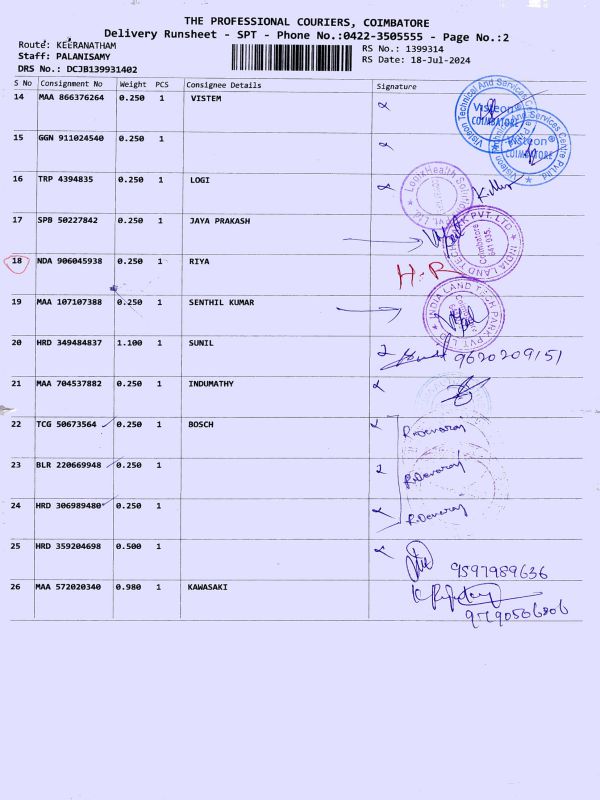 THE PROFESSIONAL COURIERS, COIMBATORE
Delivery Runsheet - SPT - Phone No.:0422-3505555 - Page No.:2
Route: KEERANATHAM
RS No.: 1399314
Staff: PALANISAMY
RS Date: 18-Jul-2024
DRS No.: DCJB139931402
S No Consignment No Weight PCS Consignee Details Signature
14 MAA 866376264 0.250 1 VISTEM
Visteon Technical And Services Centre Pvt Ltd
Visteon®
COIMBATORE
15 GGN 911024540 0.250 1
Visteon®
COIMBATORE
16 TRP 4394835 0.250 1 LOGI
17 SPB 50227842 0.250 1 JAYA PRAKASH
INDIA LAND TECH PARK PVT. LTD
Coimbatore
641 035.
18 NDA 906045938 0.250 1 RIYA
H-R
19 MAA 107107388 0.250 1 SENTHIL KUMAR
INDIA LAND TECH PARK PVT. LTD
20 HRD 349484837 1.100 1 SUNIL
9620209151
21 MAA 704537882 0.250 1 INDUMATHY
22 TCG 50673564 0.250 1 BOSCH
R.Devaraj
23 BLR 220669948 0.250 1
R.Devaraj
24 HRD 306989480 0.250 1
R.Devaraj
25 HRD 359204698 0.500 1
9597989636
26 MAA 572020340 0.980 1 KAWASAKI